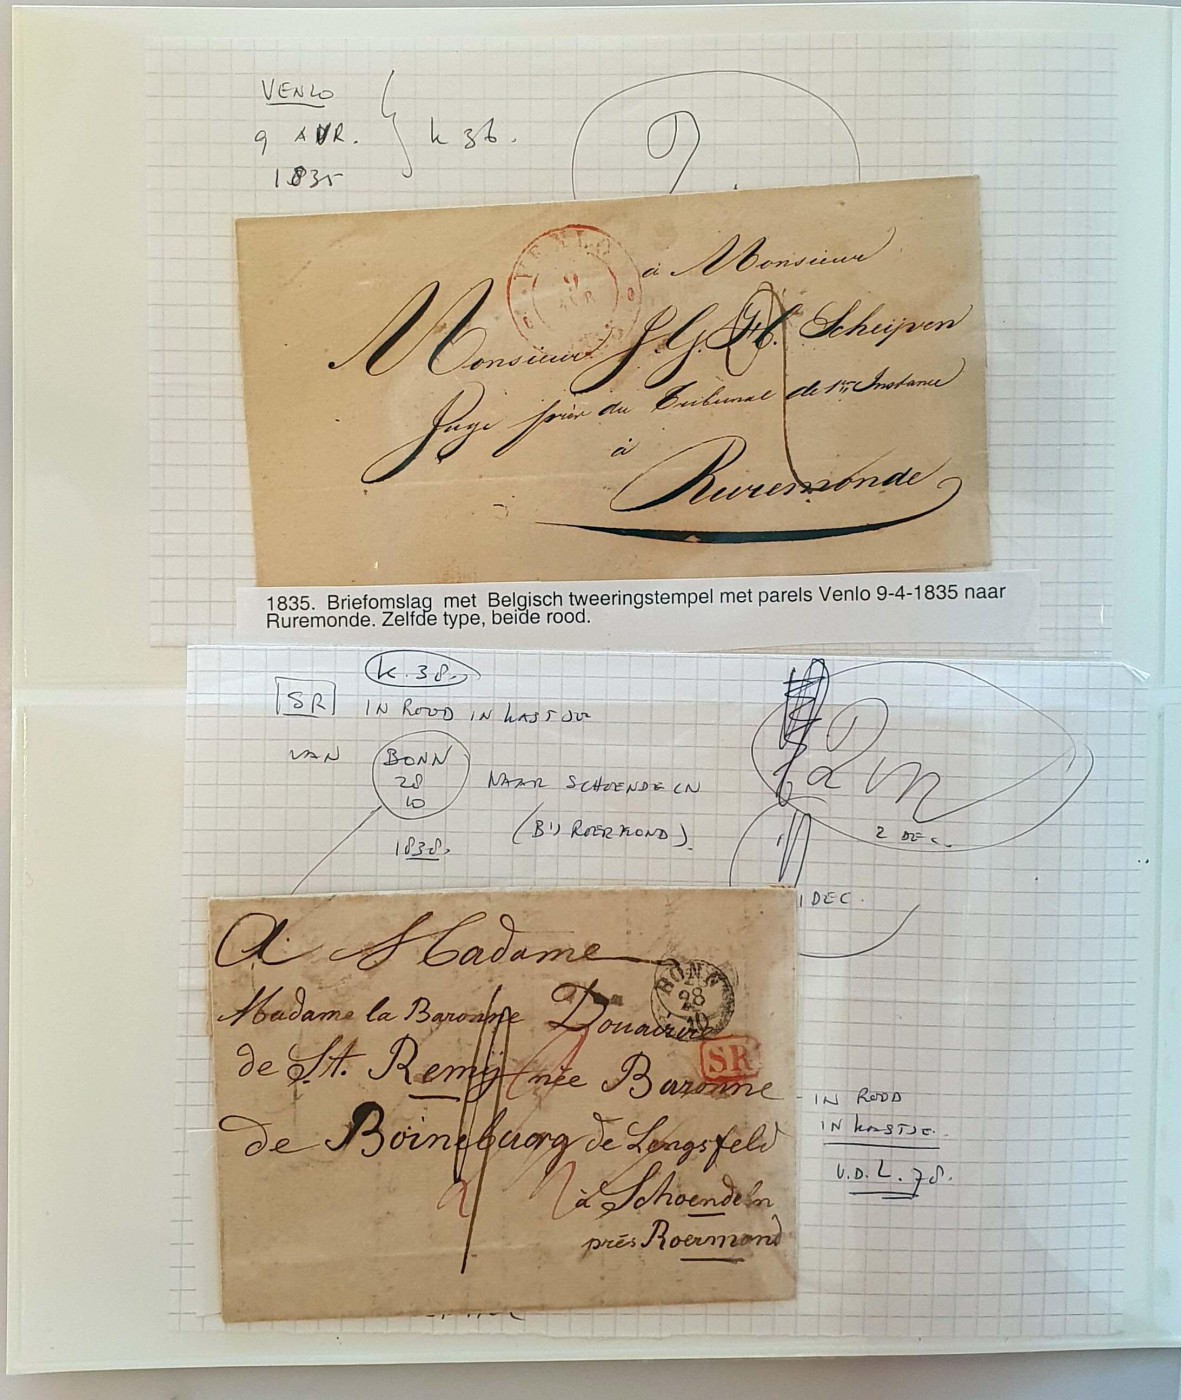 VENLO
9 AVR.
1835
k 36.
VENLO
9
AVR
à Monsieur
Monsieur J. G. H. Scheijven
Juge près du Tribunal de 1re Instance
à
Ruremonde
1835. Briefomslag met Belgisch tweeringstempel met parels Venlo 9-4-1835 naar
Ruremonde. Zelfde type, beide rood.
k. 38.
SR IN ROOD IN KASTJE
VAN BONN NAAR SCHOENDELN
28
10
(BIJ ROERMOND).
1838.
2 DEC.
1 DEC.
A Madame
BONN
28
10
Madame la Baronne Douairière
SR
de St. Remÿ née Baronne
de Boineburg de Lengsfeld
à Schoendeln
près Roermond
IN ROOD
IN KASTJE.
V.D.L. 78.